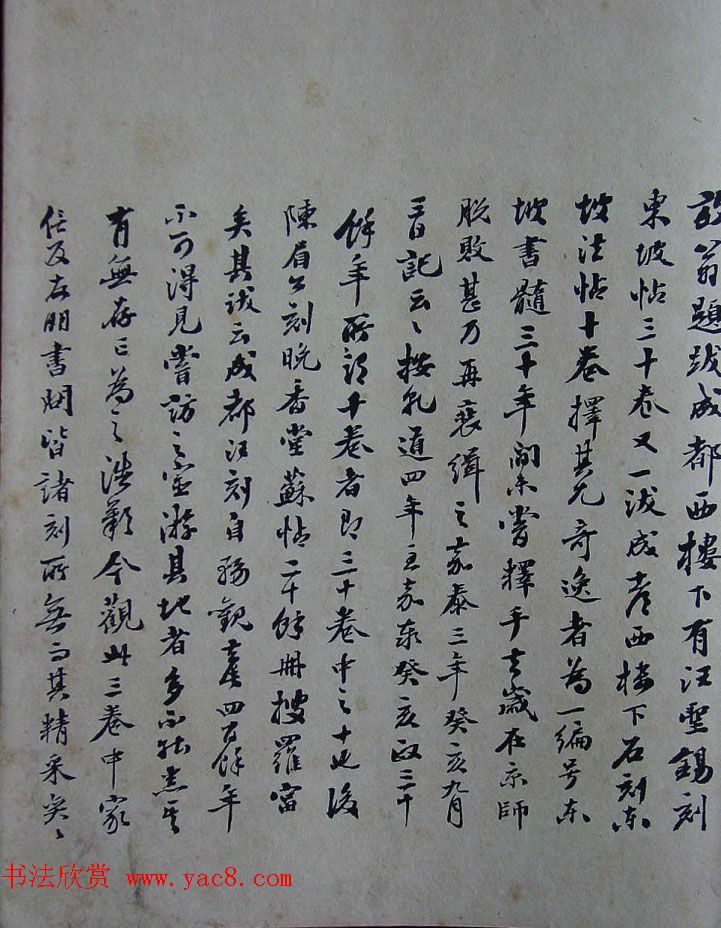 放翁題跋成都西樓下有汪聖錫刻
東坡帖三十卷又一跋成都西樓下石刻東
坡法帖十卷擇其尤奇逸者為一編号東
坡書髓三十年間未嘗釋手去歲在京師
脫敗甚乃再裒緝之嘉泰三年癸亥九月
三日記云々按乾道四年至嘉泰癸亥政三十
餘年所謂十卷者即三十卷中之十也後
陳眉公刻晚香堂蘇帖二十餘冊搜羅富
矣其跋云成都汪刻自務觀去今四百餘年
不可得見嘗訪之宦游其地者多不能悉其
有無存亡為之浩歎今觀此三卷中家
任及在明書開皆諸刻所無而其精采奕々
书法欣赏 www.yac8.com